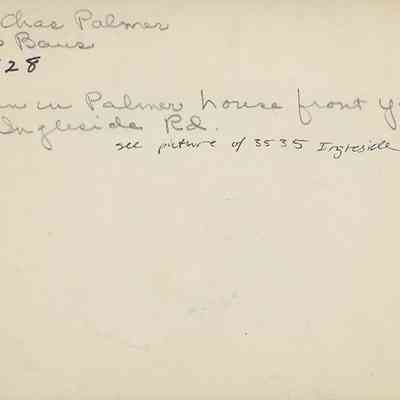 Chas Palmer
Baus
28
in Palmer house front y
Ingleside Rd.
see picture of 3535 Ingleside